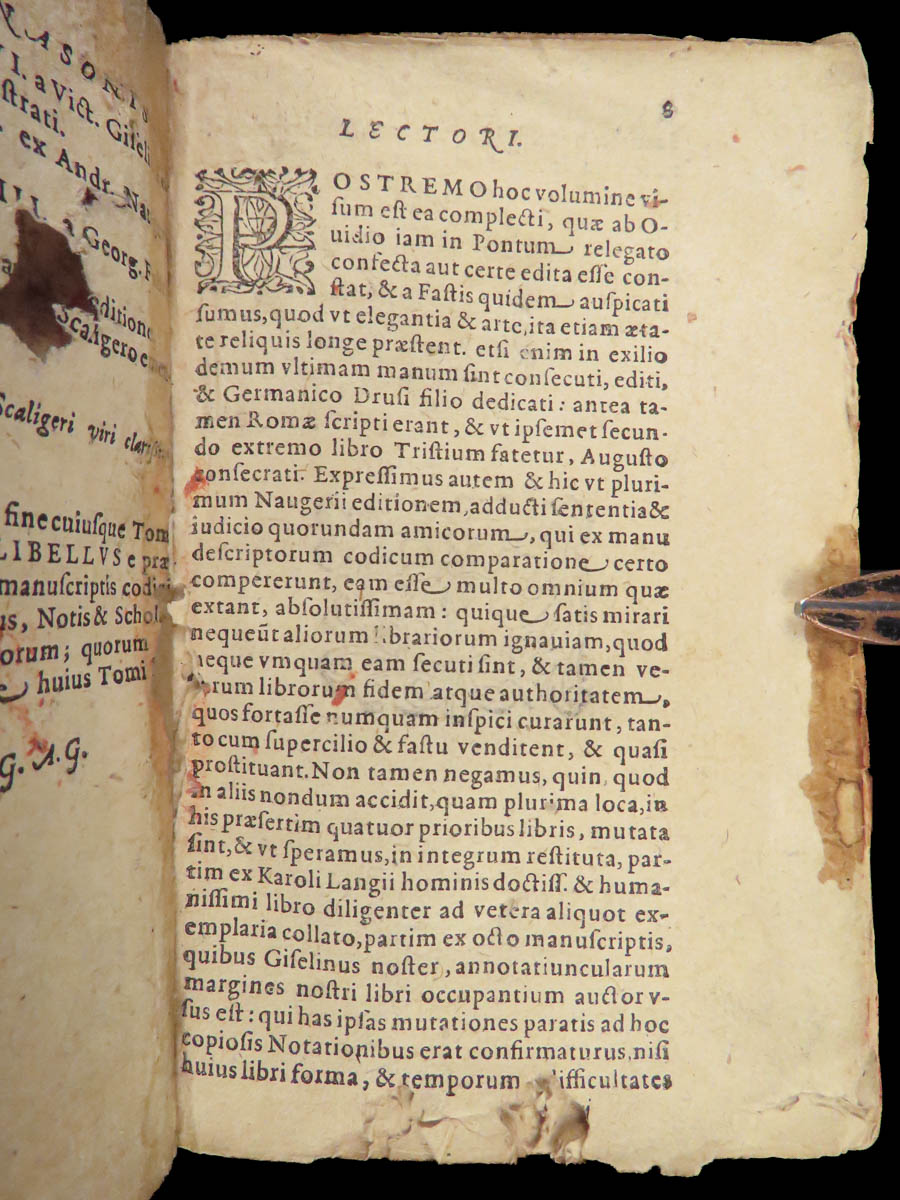 NASONIS
VI. a Vict. Giſel
ſtrati.
ex Andr. Na
a Georg.
ditione
Scaligero e
Scaligeri viri clariſ
fine cuiuſque Tom
LIBELLVS e præ
manuſcriptis codi
us, Notis & Schol
orum; quorum
huius Tomi
G. A. G.
8
LECTORI.
POSTREMO hoc volumine vi-
ſum eſt ea complecti, quæ ab O-
uidio iam in Pontum relegato
confecta aut certe edita eſſe con-
ſtat, & a Faſtis quidem auſpicati
ſumus, quod vt elegantia & arte, ita etiam æta-
te reliquis longe præſtent. etſi enim in exilio
demum vltimam manum ſint conſecuti, editi,
& Germanico Druſi filio dedicati: antea ta-
men Romæ ſcripti erant, & vt ipſemet ſecun-
do extremo libro Triſtium fatetur, Auguſto
conſecrati. Expreſſimus autem & hic vt pluri-
mum Naugerii editionem, adducti ſententia &
iudicio quorundam amicorum, qui ex manu
deſcriptorum codicum comparatione certo
compererunt, eam eſſe multo omnium quæ
extant, abſolutiſſimam: quique ſatis mirari
nequeūt aliorum librariorum ignauiam, quod
neque vmquam eam ſecuti ſint, & tamen ve-
rum librorum fidem atque authoritatem,
quos fortaſſe numquam inſpici curarunt, tan-
to cum ſupercilio & faſtu venditent, & quaſi
proſtituant. Non tamen negamus, quin, quod
in aliis nondum accidit, quam plurima loca, in
his præſertim quatuor prioribus libris, mutata
ſint, & vt ſperamus, in integrum reſtituta, par-
tim ex Karoli Langii hominis doctiſſ. & huma-
niſſimi libro diligenter ad vetera aliquot ex-
emplaria collato, partim ex octo manuſcriptis,
quibus Giſelinus noſter, annotatiuncularum
margines noſtri libri occupantium auctor v-
ſus eſt: qui has ipſas mutationes paratis ad hoc
copioſis Notationibus erat confirmaturus, niſi
huius libri forma, & temporum difficultates